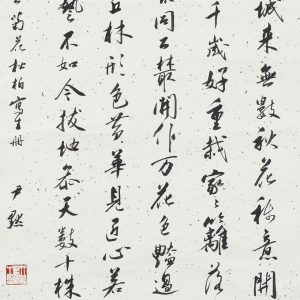 城来無數秋花称意開
千歲好重栽家〻籬落
同不叢開作万花色艷過
林形色黄華見匠心若
藝不如今拔地参天數十株
菊花松柏寫生册
尹默